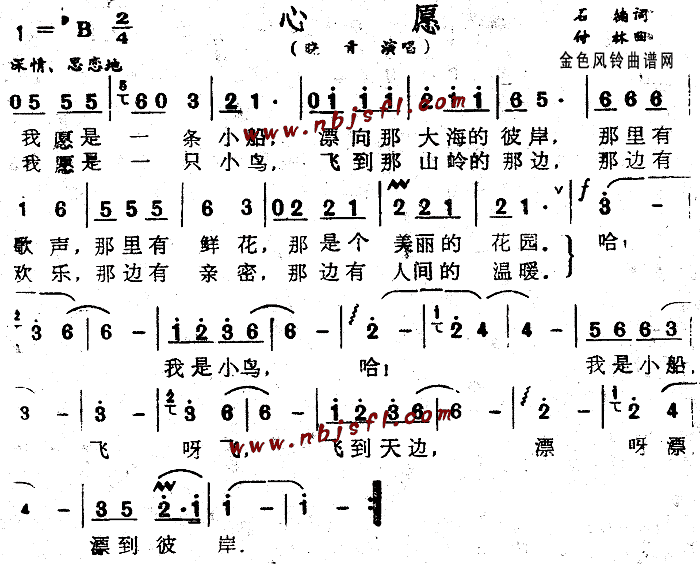 心愿
1=♭B 2/4
石 词
(晓 演唱)
付 林 曲
深情、思恋地
金色风铃曲谱网
05 55 60 3 21· 01 11 211 65·
www.nbjsfl.com
我愿是 一 条 小船, 漂向那 大海的 彼岸, 那里有
我愿是 一 只 小鸟, 飞到那 山岭的 那边, 那边有
1 6 555 6 3 02 21 2 21 21· f 3 -
歌声,那里有 鲜花,那是个 美丽的 花园. 哈!
欢乐,那边有 亲密,那边有 人间的 温暖.
3 6 6 - 12 36 6 - 2 - 2 4 4 - 56 63
我是小鸟, 哈! 我是小船,
3 - 3 - 3 6 6 - 12 36 6 - 2 - 2 4
www.nbjsfl.com
飞 呀飞, 飞到天边, 漂 呀漂
4 - 35 2·1 1 - 1 -
漂到彼 岸.